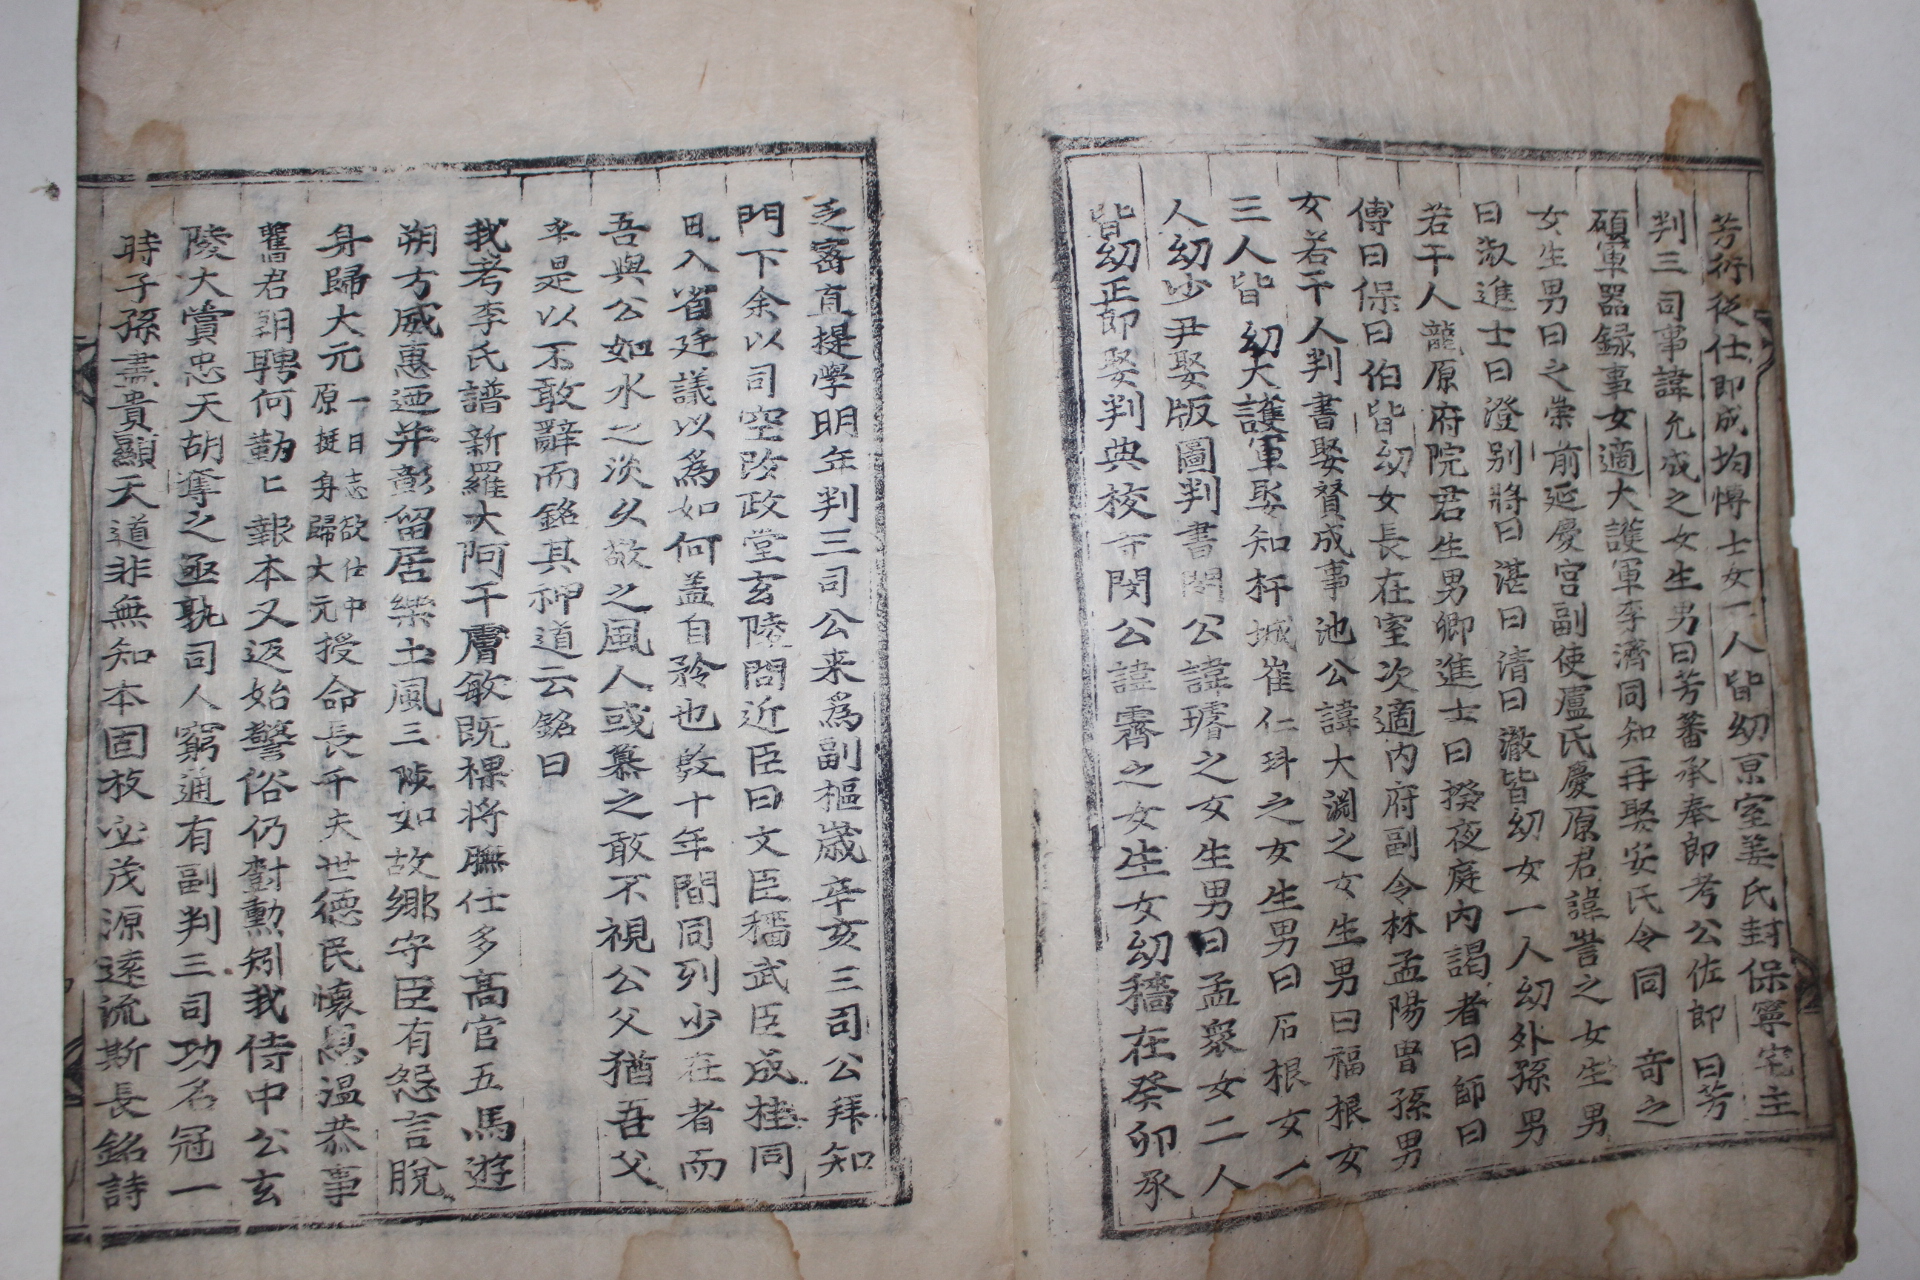 芳衍從仕郎成均愽士女一人皆幼亰室姜氏封保寧宅主
判三司事諱允成之女生男曰芳蕃承奉郎考公佐郎曰芳
碩軍器録事女適大護軍李濟同知再娶安氏令同 奇之
女生男曰之崇前延慶宮副使盧氏慶原君諱訔之女生男
曰淑進士曰澄别將曰湛曰清曰澈皆幼女一人幼外孫男
若干人龍原府院君生男卿進士曰揆夜庭内謁者曰師曰
傅曰保曰伯皆幼女長在室次適内府副令林孟陽曾孫男
女若干人判書娶賛成事池公諱大淵之女生男曰福根女
三人皆幼大護軍娶知杆城崔仁㺶之女生男曰石根女一
人幼少尹娶版圖判書閔公諱璿之女生男曰孟衆女二人
皆幼正郎娶判典校寺閔公諱霽之女生女幼穡在癸卯承
乏宻直提學明年判三司公来爲副樞歳辛亥三司公拜知
門下余以司空改政堂玄陵問近臣曰文臣穡武臣成桂同
日入省廷議以爲如何盖自矜也敦十年間同列少在者而
吾與公如水之淡久敬之風人或慕之敢不視公父猶吾父
辛是以不敢辭而銘其神道云銘曰
我考李氏譜新羅大阿干膚敏旣祼将膴仕多高官五馬遊
朔方威惠迺并彰留居樂土風三陵如故鄉守臣有怨言脫
身歸大元一日志欲仕中原挺身歸大元授命長千夫世德民懷恩温恭事
舊君朝聘何勤匕報本又返始警俗仍對勲矧我侍中公玄
陵大賞忠天胡奪之亟孰司人窮通有副判三司功名冠一
時子孫盡貴顯天道非無知本固枝必茂源逺流斯長銘詩